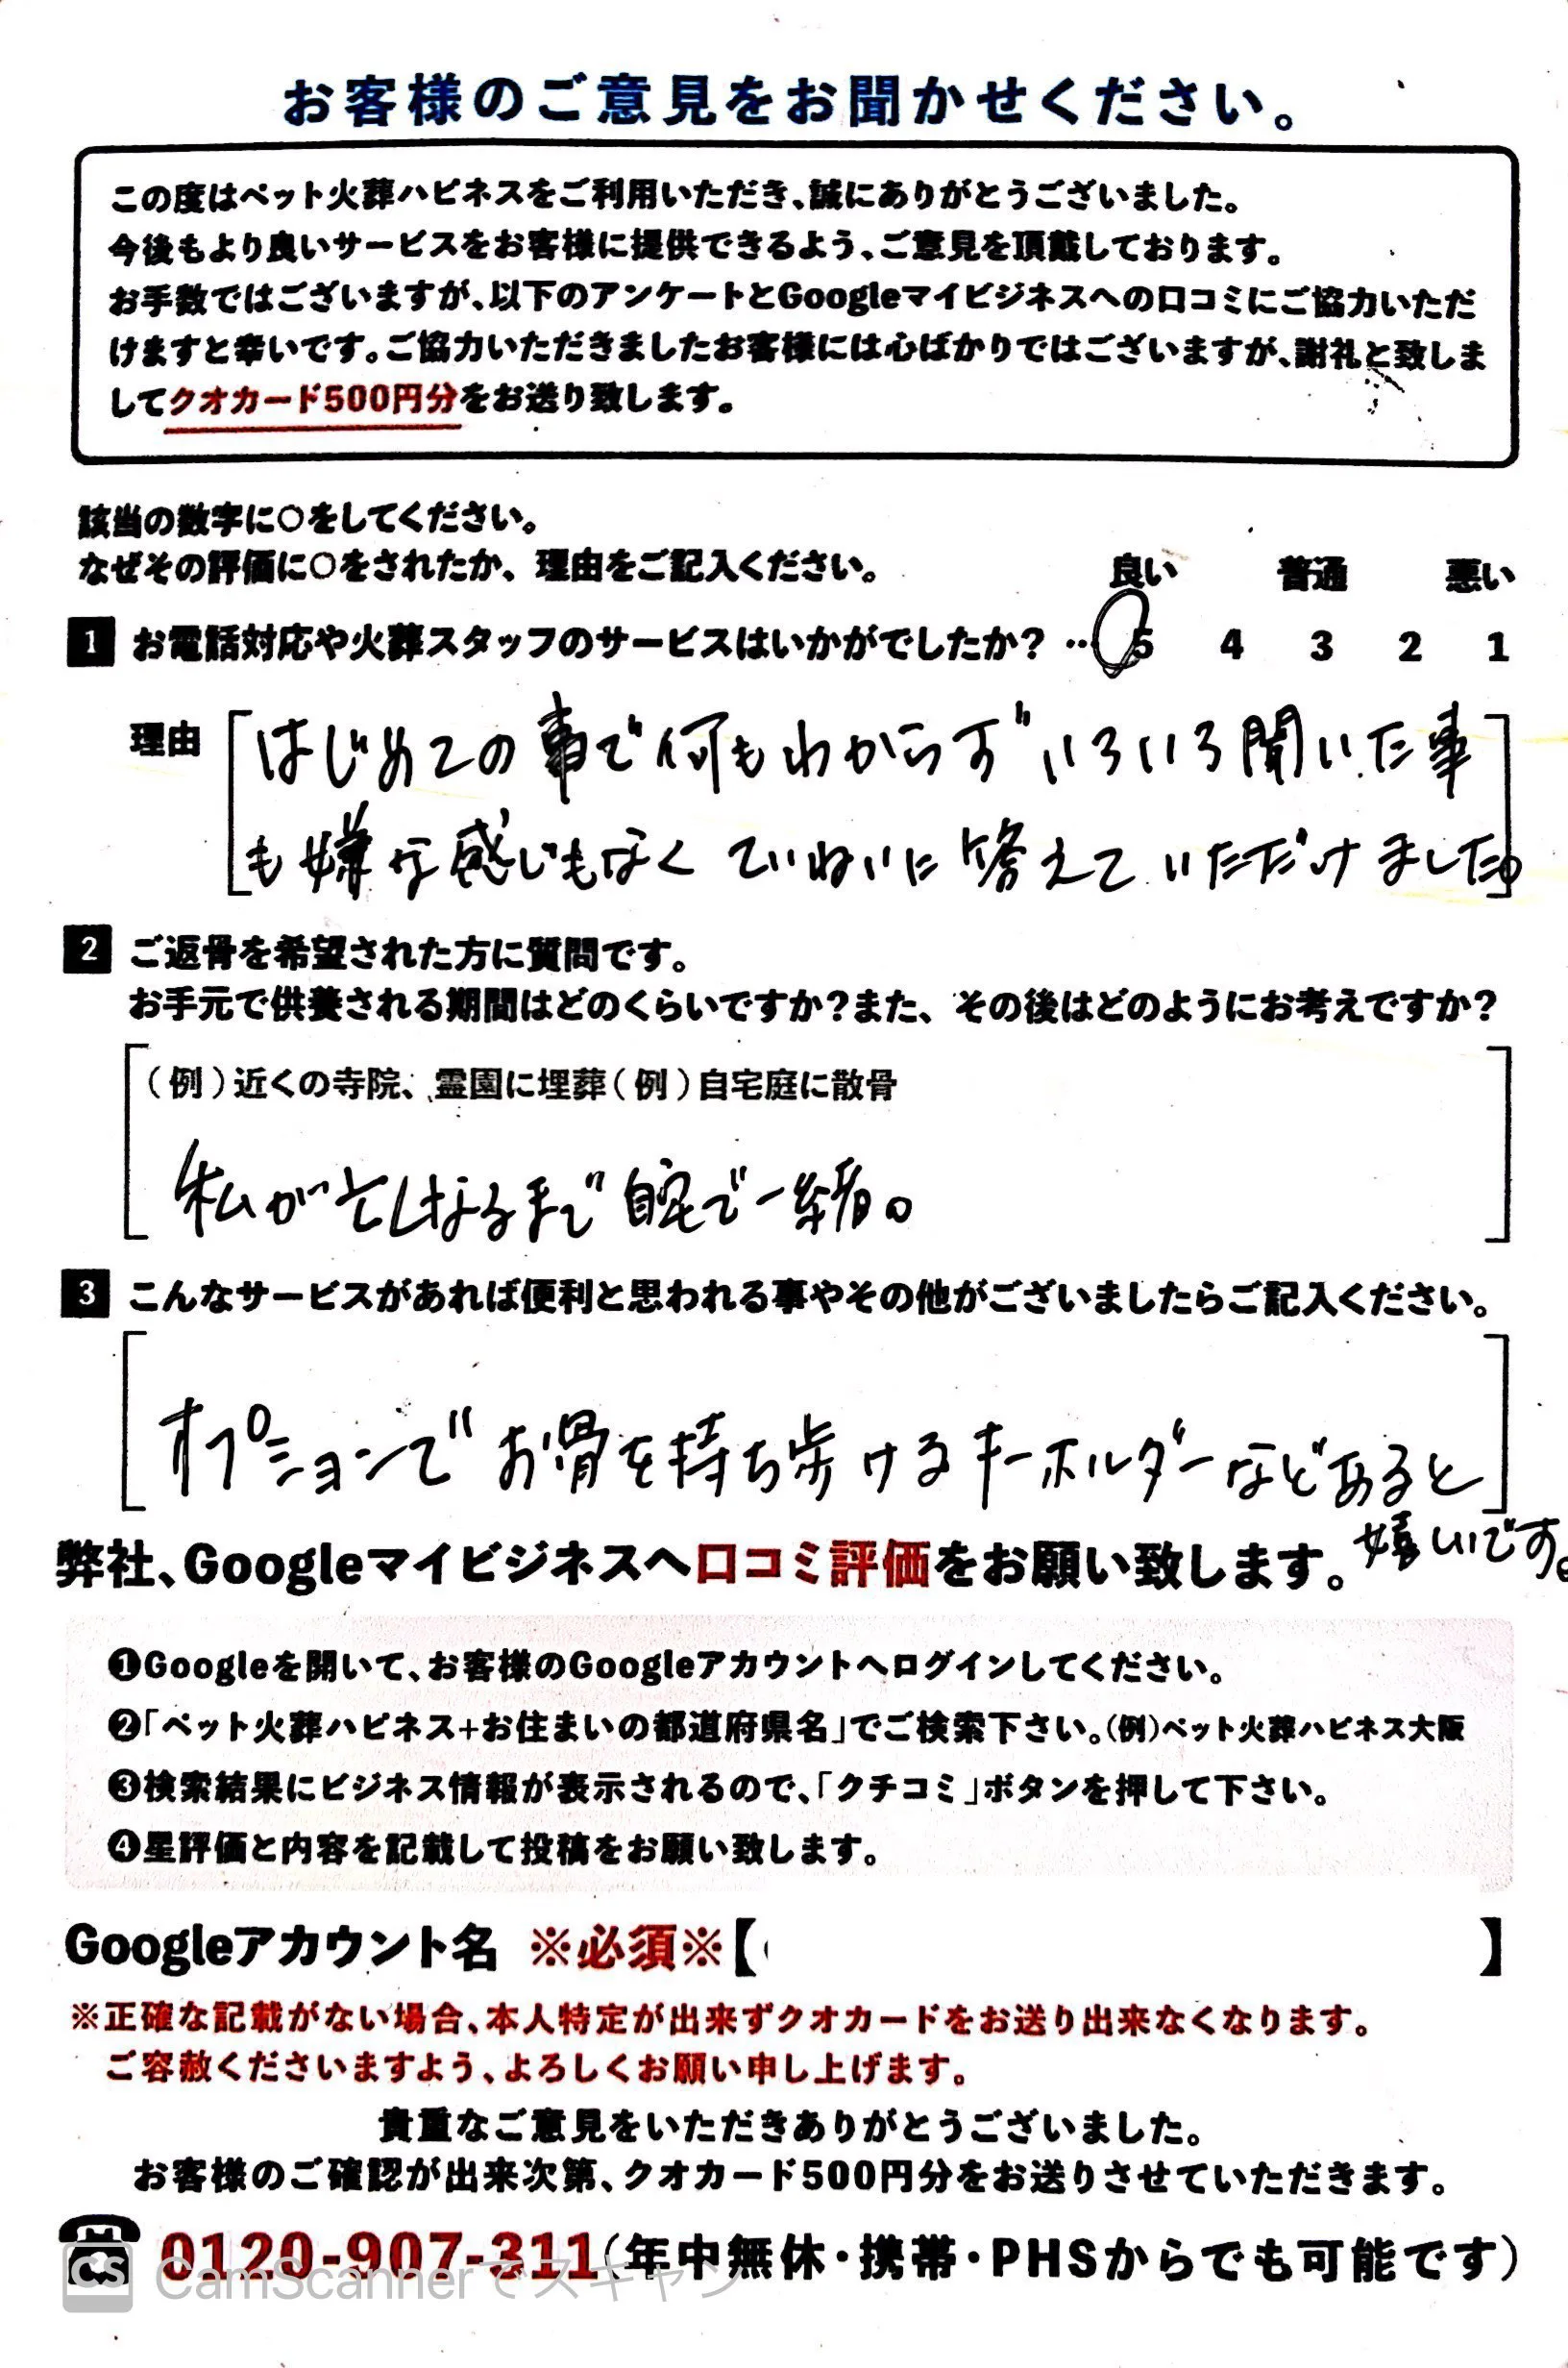 お客様のご意見をお聞かせください。
この度はペット火葬ハピネスをご利用いただき、誠にありがとうございました。
今後もより良いサービスをお客様に提供できるよう、ご意見を頂戴しております。
お手数ではございますが、以下のアンケートとGoogleマイビジネスへの口コミにご協力いただ
けますと幸いです。ご協力いただきましたお客様には心ばかりではございますが、謝礼と致しま
してクオカード500円分をお送り致します。
該当の数字に〇をしてください。
なぜその評価に〇をされたか、理由をご記入ください。 良い 普通 悪い
1 お電話対応や火葬スタッフのサービスはいかがでしたか？ … 5 4 3 2 1
理由 はじめての事で何もわからず いろいろ聞いた事
も嫌な感じもなく ていねいに答えて いただけました。
2 ご返骨を希望された方に質問です。
お手元で供養される期間はどのくらいですか？また、その後はどのようにお考えですか？
（例）近くの寺院、霊園に埋葬（例）自宅庭に散骨
私が亡くなるまで自宅で一緒。
3 こんなサービスがあれば便利と思われる事やその他がございましたらご記入ください。
オプションで お骨を持ち歩けるキーホルダーなどあると
嬉しいです。
弊社、Googleマイビジネスへ口コミ評価をお願い致します。
❶Googleを開いて、お客様のGoogleアカウントへログインしてください。
❷「ペット火葬ハピネス+お住まいの都道府県名」でご検索下さい。（例）ペット火葬ハピネス大阪
❸検索結果にビジネス情報が表示されるので、「クチコミ」ボタンを押して下さい。
❹星評価と内容を記載して投稿をお願い致します。
Googleアカウント名 ※必須※【 】
※正確な記載がない場合、本人特定が出来ずクオカードをお送り出来なくなります。
ご容赦くださいますよう、よろしくお願い申し上げます。
貴重なご意見をいただきありがとうございました。
お客様のご確認が出来次第、クオカード500円分をお送りさせていただきます。
0120-907-311（年中無休・携帯・PHSからでも可能です）
CS CamScannerでスキャン